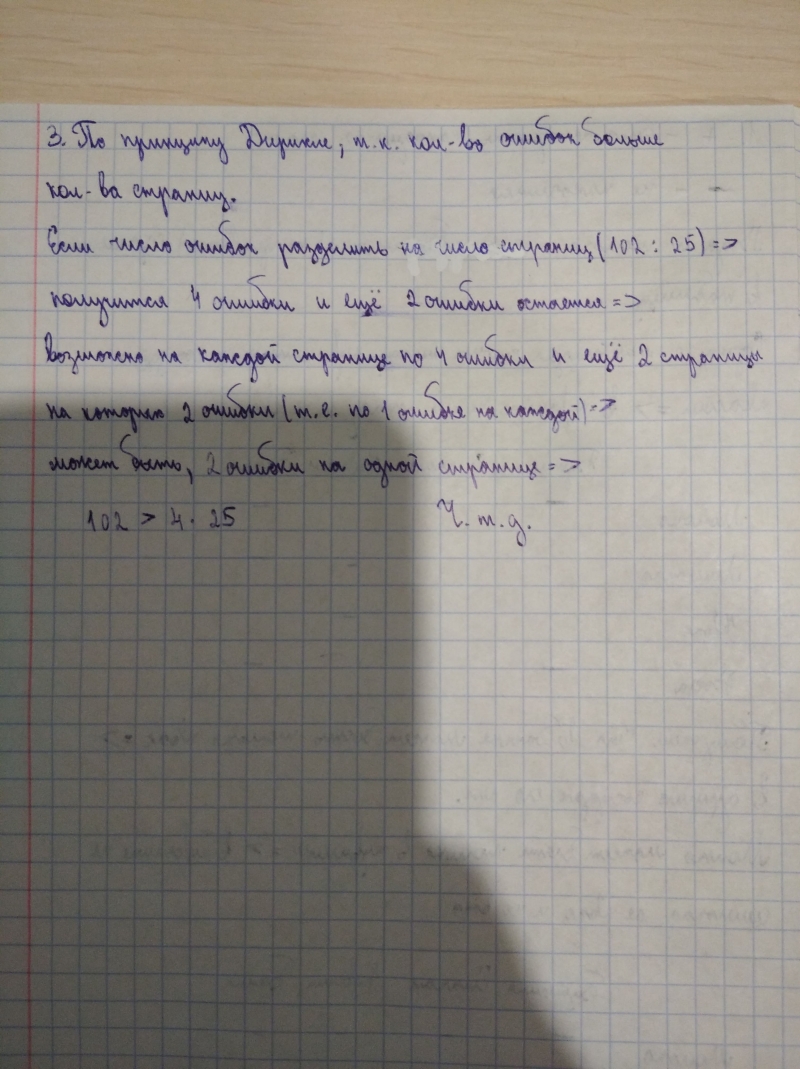 3. По принципу Дирихле, т.к. кол-во ошибок больше
кол-ва страниц.
Если число ошибок разделить на число страниц (102 : 25) =>
получится 4 ошибки и ещё 2 ошибки остается =>
возможно на каждой странице по 4 ошибки и ещё 2 страницы
на которых 2 ошибки (т.е. по 1 ошибке на каждой) =>
может быть, 2 ошибки на одной странице =>
102 > 4 · 25 Ч.т.д.